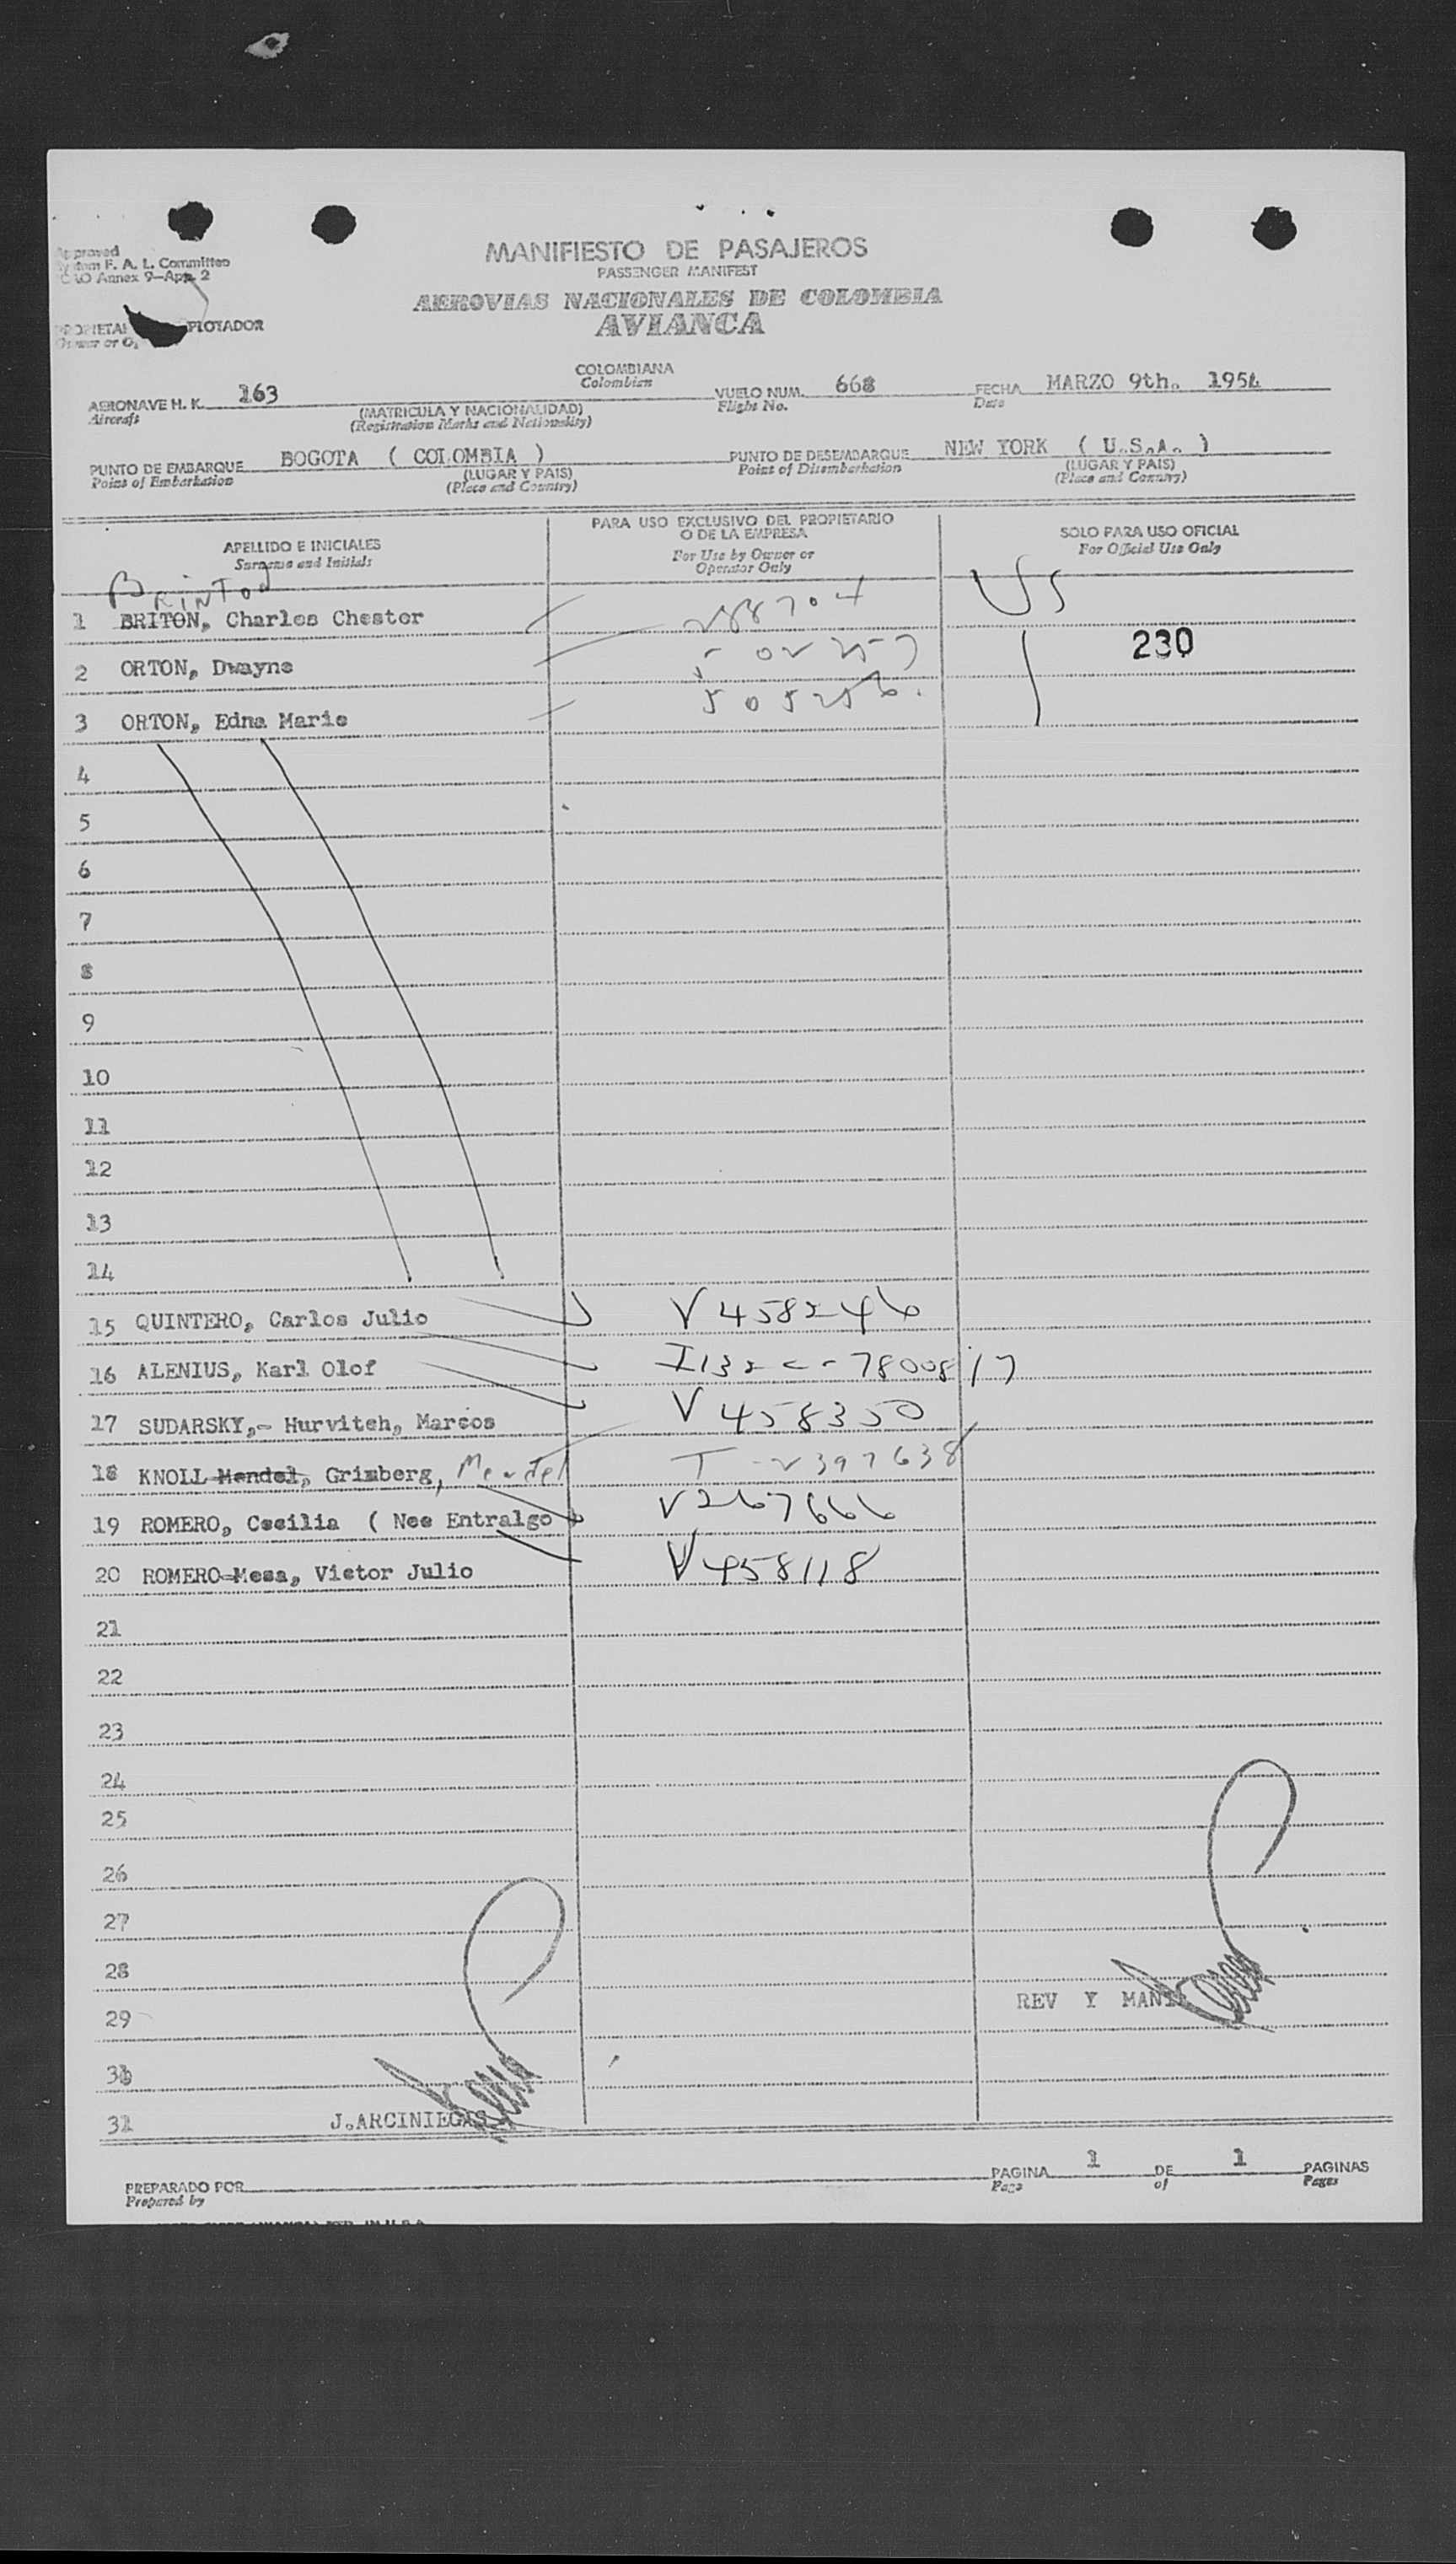 Approved
System F. A. L. Committee
ICAO Annex 9—App. 2
MANIFIESTO DE PASAJEROS
PASSENGER MANIFEST
AEROVIAS NACIONALES DE COLOMBIA
AVIANCA
PLOTADOR
Owner or
COLOMBIANA
Colombian
AERONAVE H. K. 163
Aircraft
(MATRICULA Y NACIONALIDAD)
(Registration Marks and Nationality)
VUELO NUM. 668
Flight No.
FECHA MARZO 9th. 1954
Date
PUNTO DE EMBARQUE BOGOTA ( COLOMBIA )
Point of Embarkation
(LUGAR Y PAIS)
(Place and Country)
PUNTO DE DESEMBARQUE NEW YORK ( U.S.A. )
Point of Disembarkation
(LUGAR Y PAIS)
(Place and Country)
APELLIDO E INICIALES
Surname and Initials
PARA USO EXCLUSIVO DEL PROPIETARIO
O DE LA EMPRESA
For Use by Owner or
Operator Only
SOLO PARA USO OFICIAL
For Official Use Only
BRINTON
US
1 BRITON, Charles Chester 288704
230
2 ORTON, Dwayne
3 ORTON, Edna Marie
4
5
6
7
8
9
10
11
12
13
14
15 QUINTERO, Carlos Julio V458246
16 ALENIUS, Karl Olof
17 SUDARSKY,- Hurvitch, Marcos V458350
18 KNOLL Mendel, Grimberg, Mendel
19 ROMERO, Cecilia ( Nee Entralgo ) V267666
20 ROMERO-Mesa, Victor Julio V458118
21
22
23
24
25
26
27
28
REV Y MANI
29
30
31
J.ARCINIEGAS
PREPARADO POR
Prepared by
PAGINA 1 DE 1 PAGINAS
Page of Pages